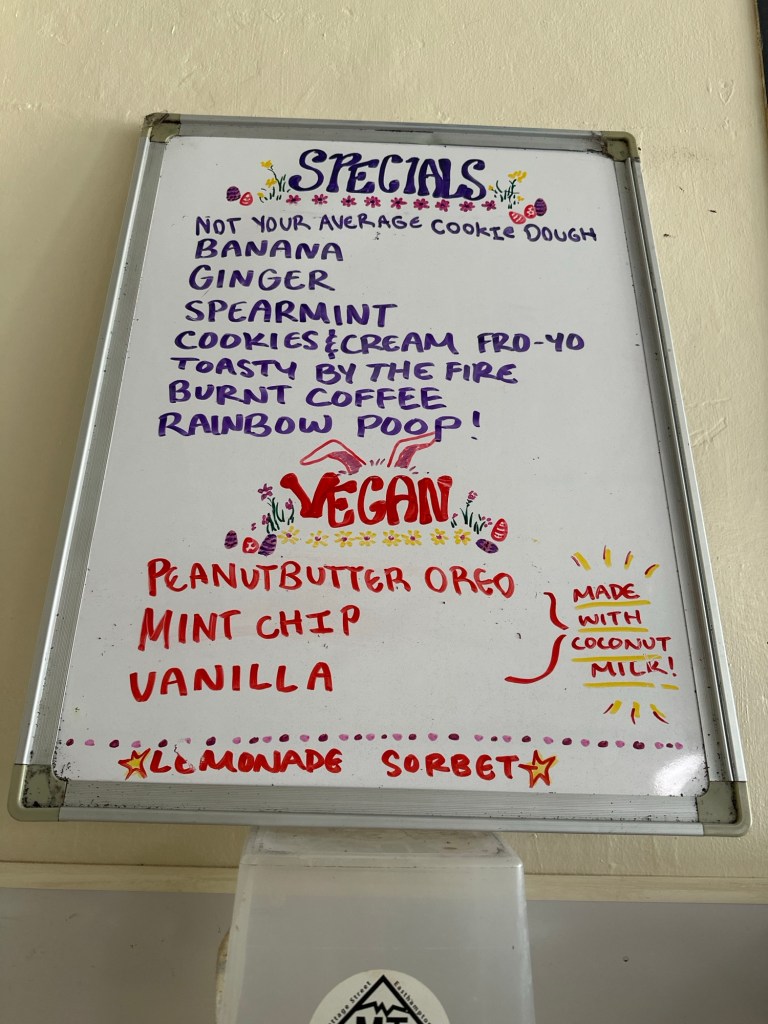 SPECIALS
NOT YOUR AVERAGE COOKIE DOUGH
BANANA
GINGER
SPEARMINT
COOKIES & CREAM FRO-YO
TOASTY BY THE FIRE
BURNT COFFEE
RAINBOW POOP!
VEGAN
PEANUTBUTTER OREO
MINT CHIP
VANILLA
MADE
WITH
COCONUT
MILK!
LEMONADE SORBET
Street
MT